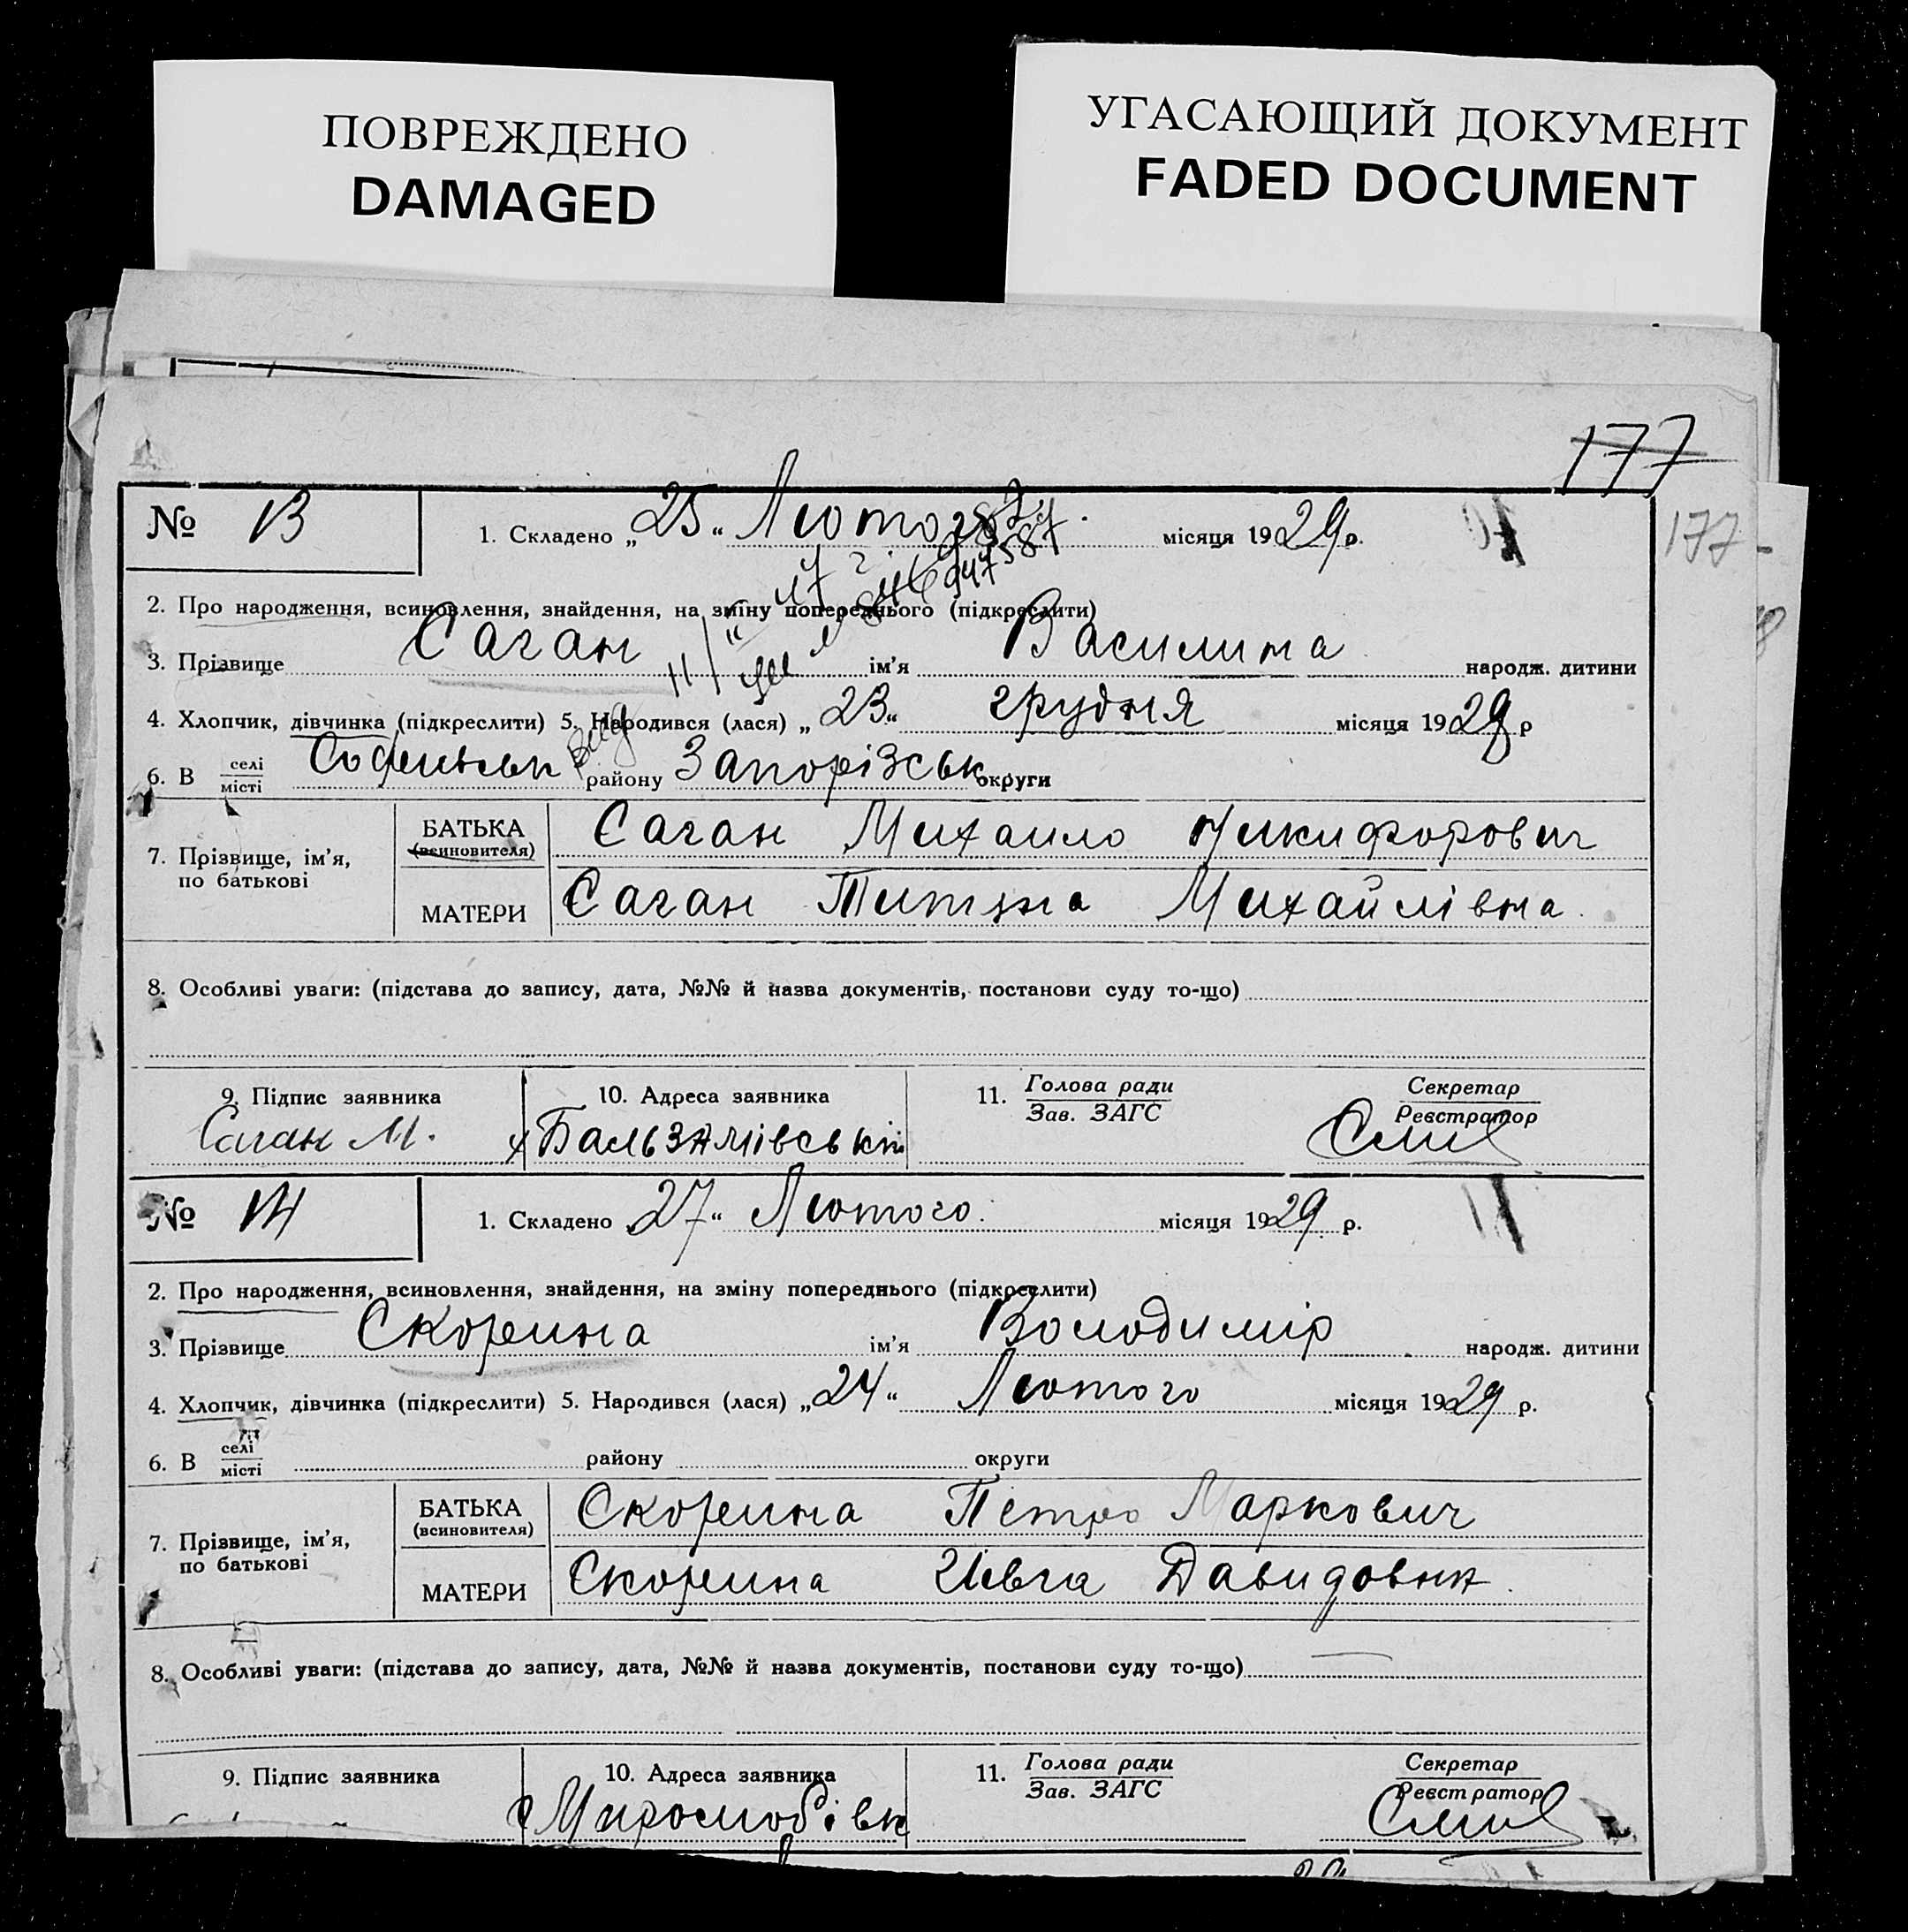 ПОВРЕЖДЕНО
DAMAGED
УГАСАЮЩИЙ ДОКУМЕНТ
FADED DOCUMENT
177
177
№ 13
1. Складено „25“ Лютого місяця 1929 р.
2. Про народження, всиновлення, знайдення, на зміну попереднього (підкреслити)
3. Прізвище Саган ім’я Василина народж. дитини
4. Хлопчик, дівчинка (підкреслити) 5. Народився (лася) „23“ грудня місяця 1928 р
6. В селі місті Софиївськ району Запорізськ округи
7. Прізвище, ім’я, по батькові
БАТЬКА (всиновителя) Саган Михаило Никифорович
МАТЕРИ Саган Михайлівна
8. Особливі уваги: (підстава до запису, дата, №№ й назва документів, постанови суду то-що)
9. Підпис заявника 10. Адреса заявника 11. Голова ради Зав. ЗАГС Секретар Реєстратор
Саган М. х Бальзамівській
№ 14
1. Складено 27“ Лютого місяця 1929 р.
2. Про народження, всиновлення, знайдення, на зміну попереднього (підкреслити)
3. Прізвище Скорина ім’я Володимір народж. дитини
4. Хлопчик, дівчинка (підкреслити) 5. Народився (лася) „24“ Лютого місяця 1929 р.
6. В селі місті району округи
7. Прізвище, ім’я, по батькові
БАТЬКА (всиновителя) Скорина Петро Маркович
МАТЕРИ Скорина Ивга Давидовна
8. Особливі уваги: (підстава до запису, дата, №№ й назва документів, постанови суду то-що)
9. Підпис заявника 10. Адреса заявника 11. Голова ради Зав. ЗАГС Секретар Реєстратор
Миролюбівк